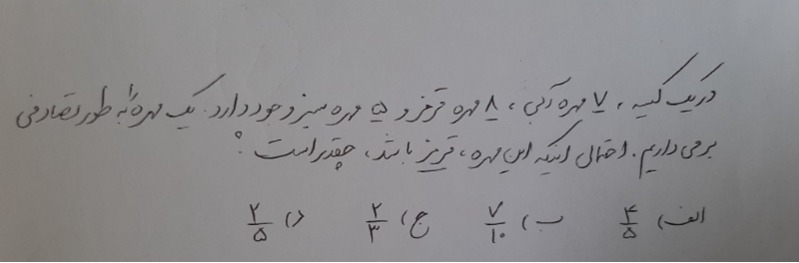 در یک کیسه، ۷ مهره آبی، ۸ مهره قرمز و ۵ مهره سبز وجود دارد. یک مهره را به طور تصادفی
برمی داریم. احتمال اینکه این مهره، قرمز باشد، چقدر است؟
الف) ۴/۵ ب) ۷/۱۰ ج) ۲/۳ د) ۲/۵